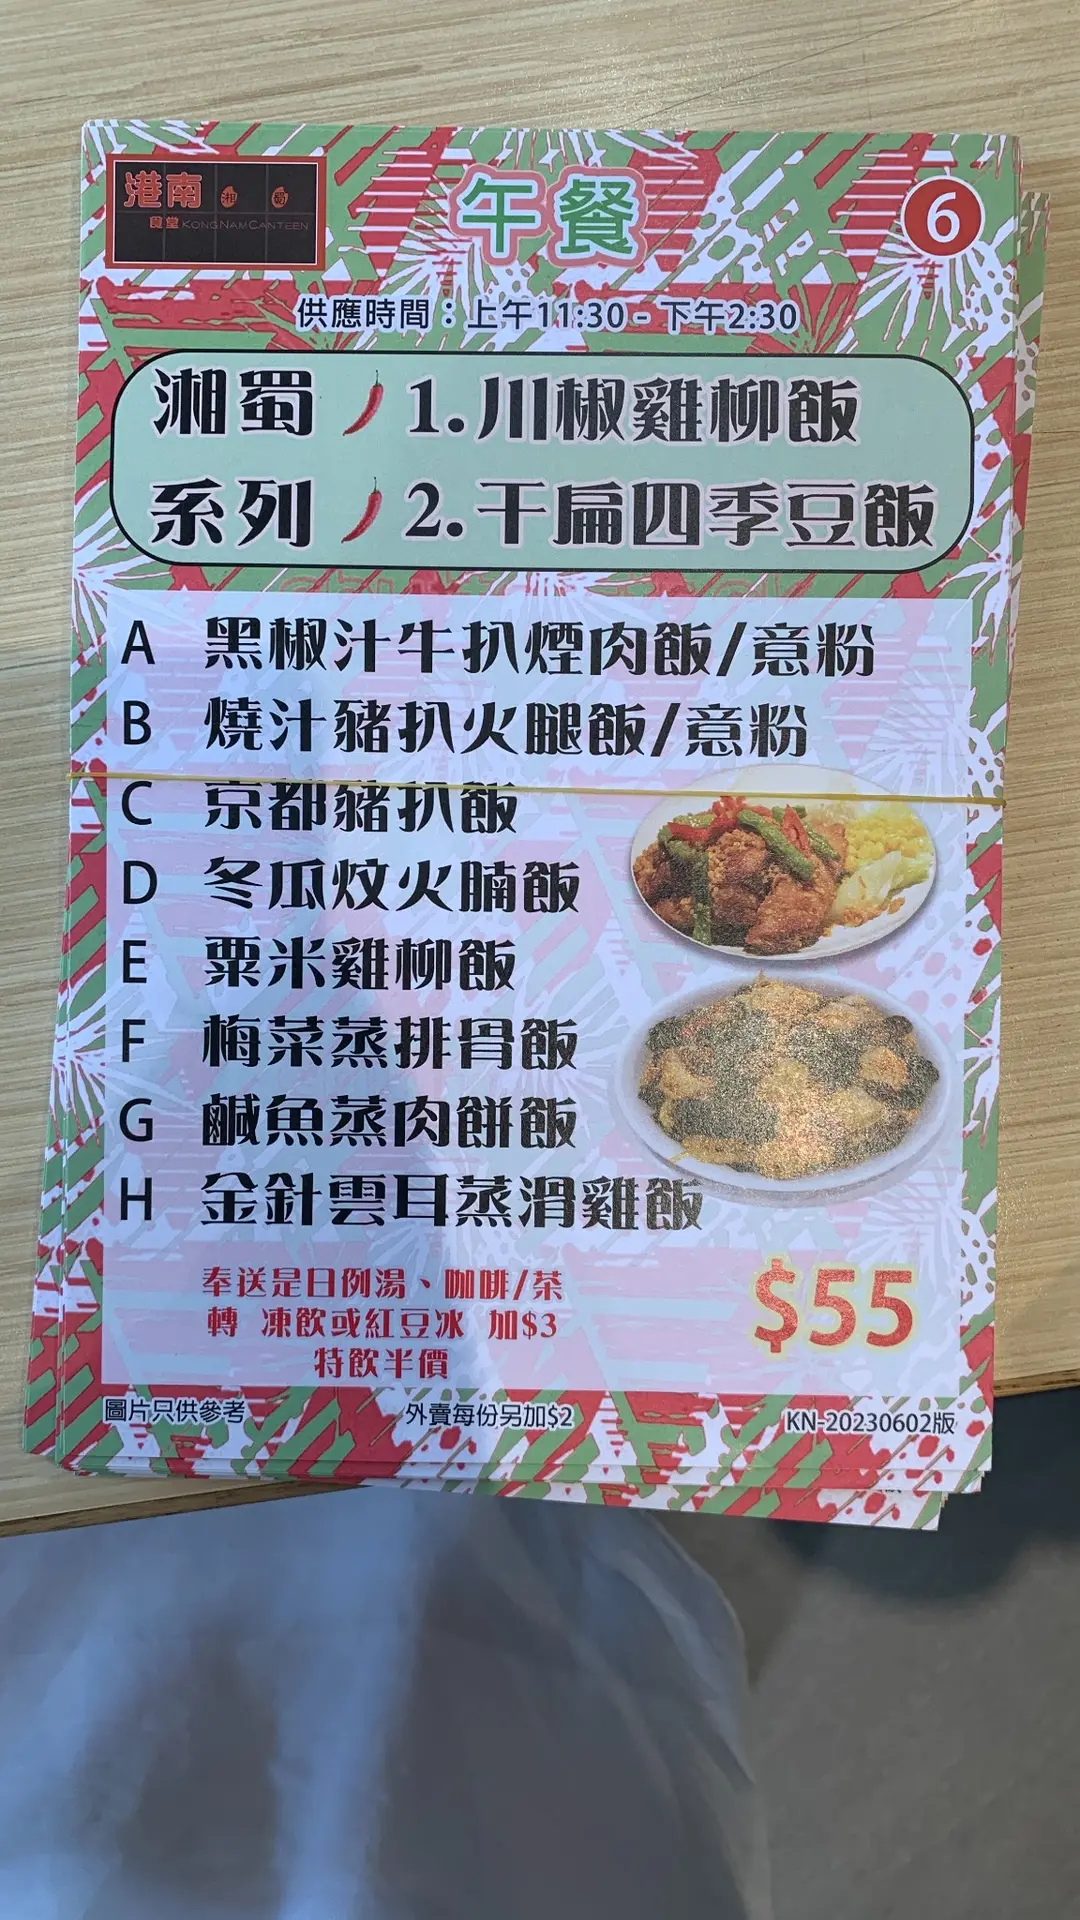 港南 湘 蜀
食堂 KONGNAMCANTEEN
午餐
6
供應時間：上午11:30 - 下午2:30
湘蜀 1.川椒雞柳飯
系列 2.干扁四季豆飯
A 黑椒汁牛扒煙肉飯/意粉
B 燒汁豬扒火腿飯/意粉
C 京都豬扒飯
D 冬瓜炆火腩飯
E 粟米雞柳飯
F 梅菜蒸排骨飯
G 鹹魚蒸肉餅飯
H 金針雲耳蒸滑雞飯
奉送是日例湯、咖啡/茶
轉 凍飲或紅豆冰 加$3
特飲半價
$55
圖片只供參考
外賣每份另加$2
KN-20230602版